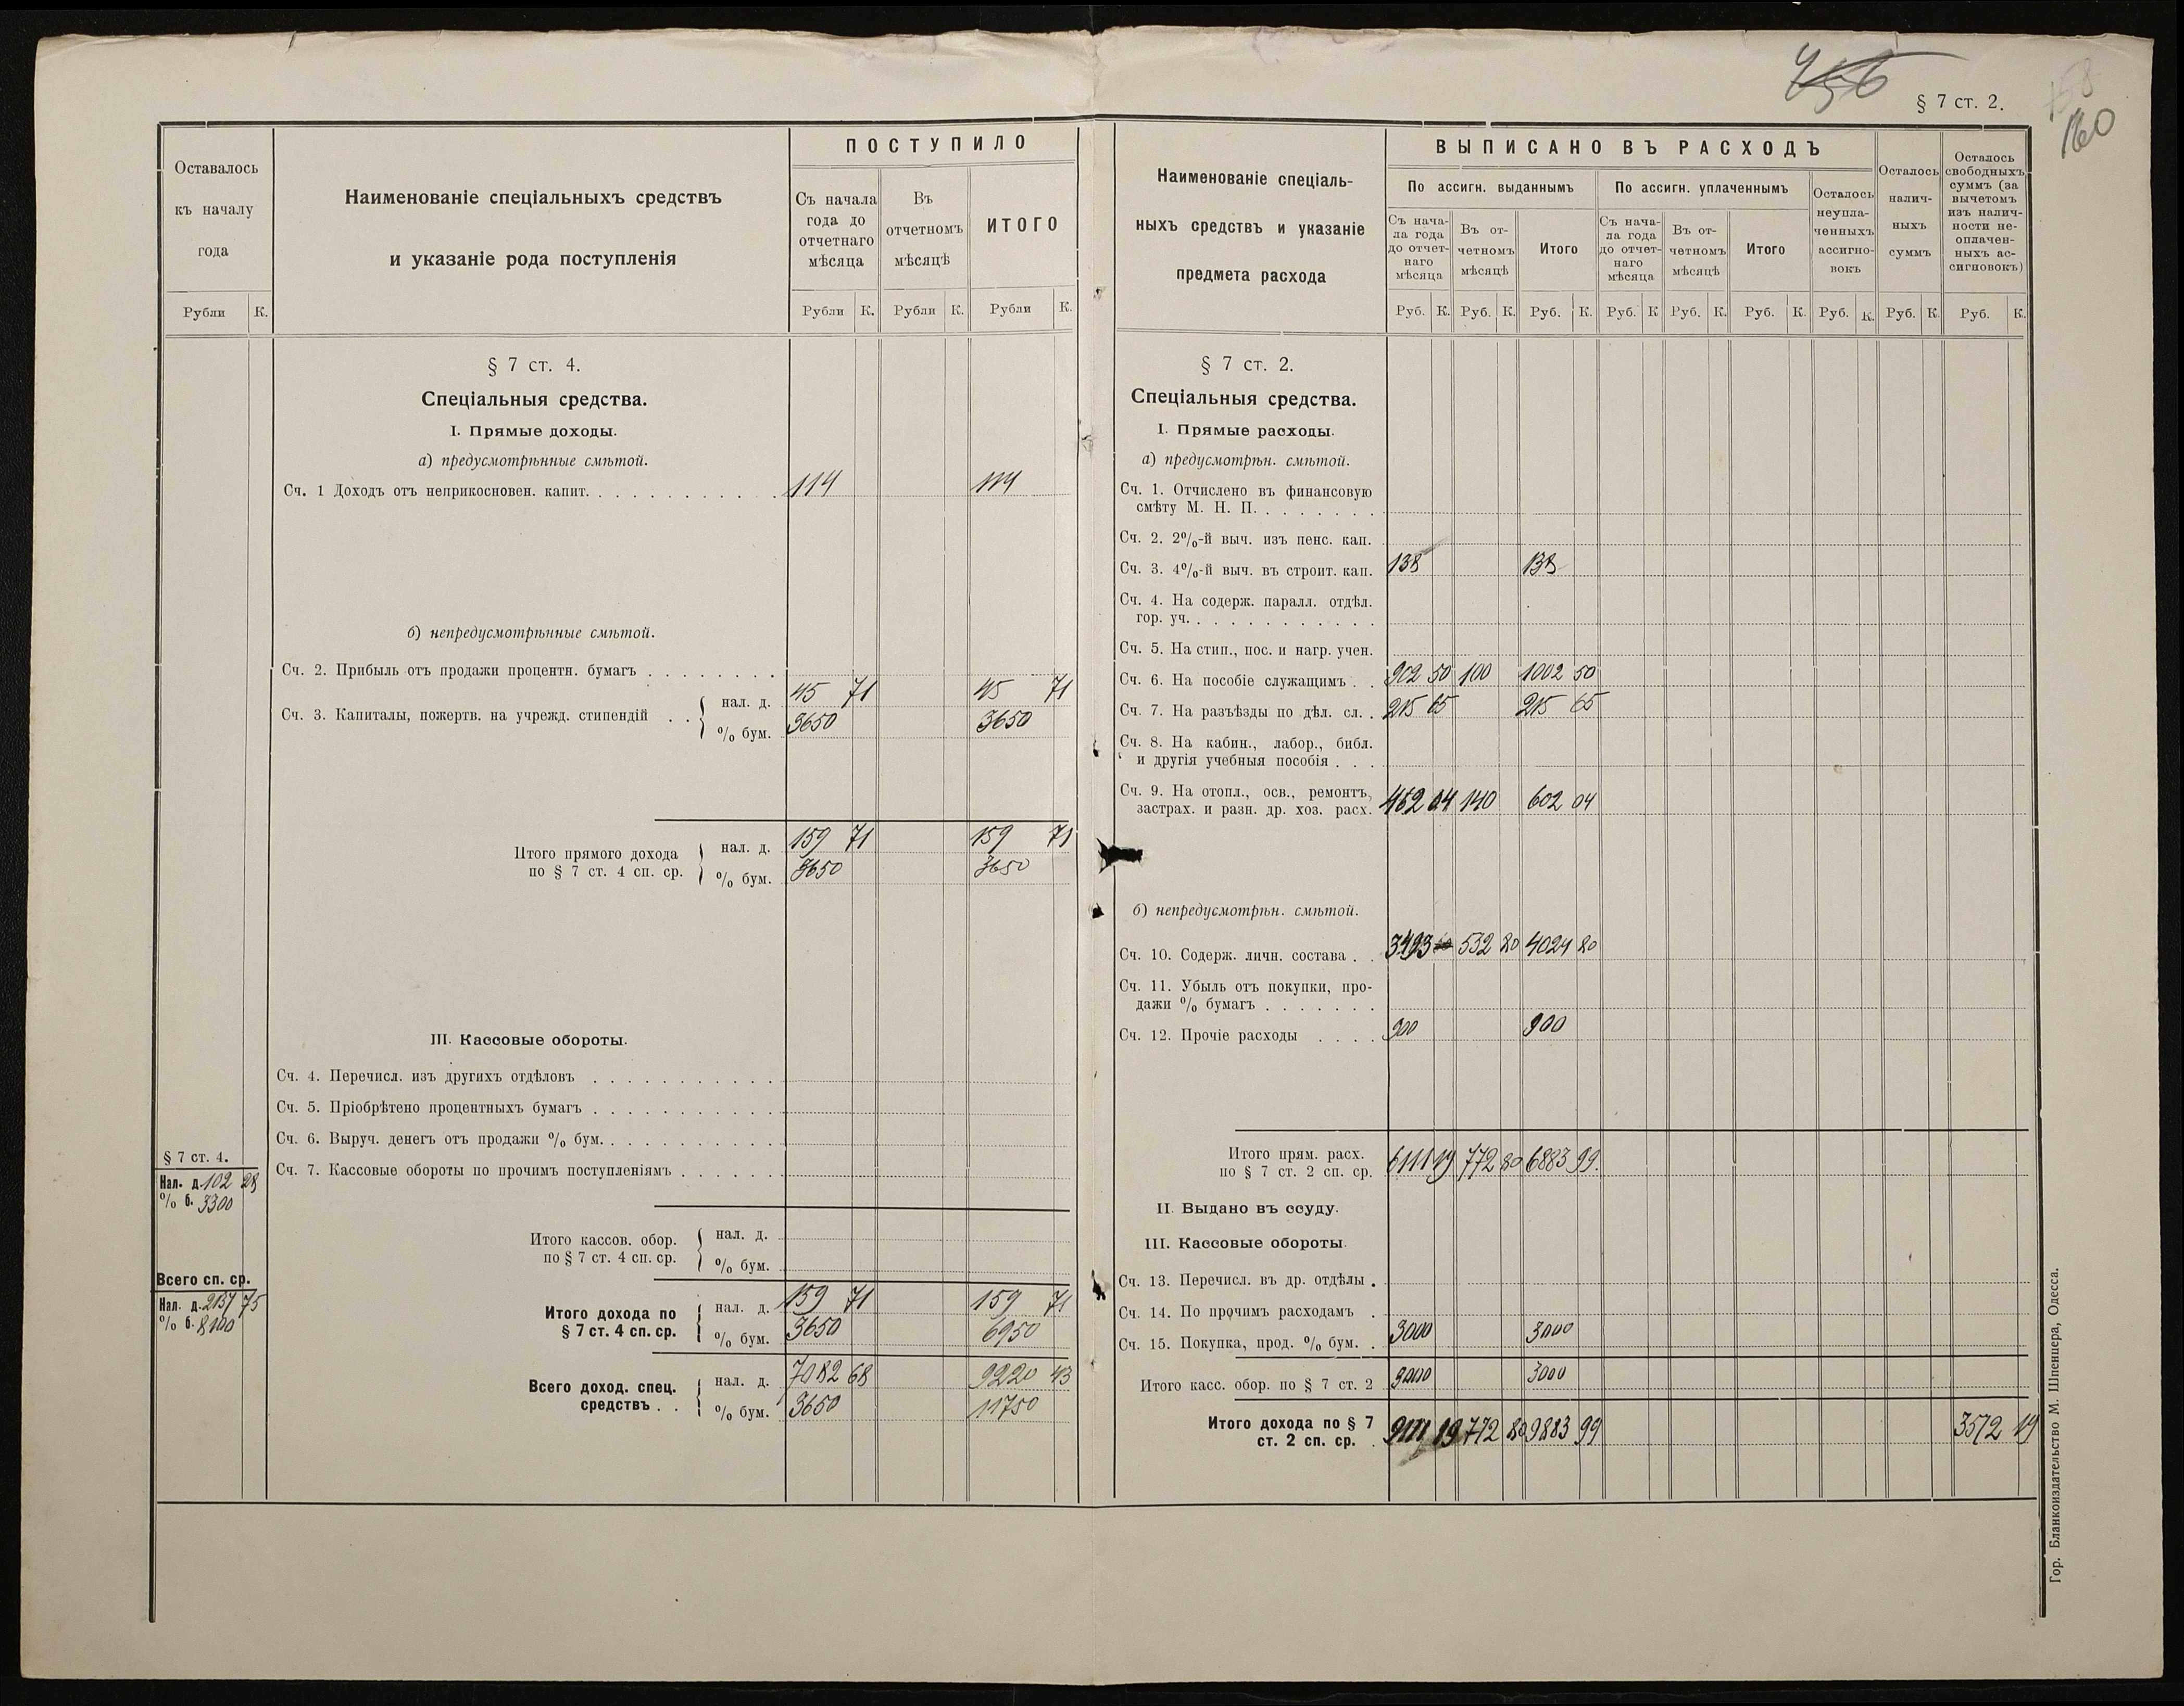 § 7 ст. 2.
160
Оставалось
къ началу
года
Рубли К.
Наименованіе спеціальныхъ средствъ
и указаніе рода поступленія
ПОСТУПИЛО
Съ начала
года до
отчетнаго
мѣсяца
Въ
отчетномъ
мѣсяцѣ
ИТОГО
Рубли К. Рубли К. Рубли К.
§ 7 ст. 4.
Спеціальныя средства.
I. Прямые доходы.
а) предусмотрѣнные смѣтой.
Сч. 1 Доходъ отъ неприкосновен. капит. 114 114
б) непредусмотрѣнные смѣтой.
Сч. 2. Прибыль отъ продажи процентн. бумагъ
Сч. 3. Капиталы, пожертв. на учрежд. стипендій
нал. д. 45 71 45 71
% бум. 3650 3650
Итого прямого дохода
по § 7 ст. 4 сп. ср.
нал. д. 159 71 159 71
% бум. 3650 3650
III. Кассовые обороты.
Сч. 4. Перечисл. изъ другихъ отдѣловъ
Сч. 5. Пріобрѣтено процентныхъ бумагъ
Сч. 6. Выруч. денегъ отъ продажи % бум.
Сч. 7. Кассовые обороты по прочимъ поступленіямъ
§ 7 ст. 4.
Нал. д. 102 28
% б. 3300
Итого кассов. обор.
по § 7 ст. 4 сп. ср.
нал. д.
% бум.
Всего сп. ср.
Нал. д. 2137 75
% б. 8100
Итого дохода по
§ 7 ст. 4 сп. ср.
нал. д. 159 71 159 71
% бум. 3650 6950
Всего доход. спец.
средствъ . .
нал. д. 7082 68 9220 43
% бум. 3650 11750
Наименованіе спеціаль-
ныхъ средствъ и указаніе
предмета расхода
ВЫПИСАНО ВЪ РАСХОДЪ
По ассигн. выданнымъ
Съ нача-
ла года
до отчет-
наго
мѣсяца
Въ от-
четномъ
мѣсяцѣ
Итого
По ассигн. уплаченнымъ
Съ нача-
ла года
до отчет-
наго
мѣсяца
Въ от-
четномъ
мѣсяцѣ
Итого
Осталось
неупла-
ченныхъ
ассигно-
вокъ
Осталось
налич-
ныхъ
суммъ
Осталось
свободныхъ
суммъ (за
вычетомъ
изъ налич-
ности не-
оплачен-
ныхъ ас-
сигновокъ)
Руб. К. Руб. К. Руб. К. Руб. К Руб. К. Руб. К. Руб. К. Руб. К Руб. К.
§ 7 ст. 2.
Спеціальныя средства.
I. Прямые расходы.
а) предусмотрѣн. смѣтой.
Сч. 1. Отчислено въ финансовую
смѣту М. Н. П.
Сч. 2. 2%-й выч. изъ пенс. кап.
Сч. 3. 4%-й выч. въ строит. кап. 138 138
Сч. 4. На содерж. паралл. отдѣл.
гор. уч.
Сч. 5. На стип., пос. и нагр. учен.
Сч. 6. На пособіе служащимъ . . 902 50 100 1002 50
Сч. 7. На разъѣзды по дѣл. сл. . 215 65 215 65
Сч. 8. На кабин., лабор., библ.
и другія учебныя пособія . . .
Сч. 9. На отопл., осв., ремонтъ,
застрах. и разн. др. хоз. расх. 462 04 140 602 04
б) непредусмотрѣн. смѣтой.
Сч. 10. Содерж. личн. состава . . 3493 532 80 4024 80
Сч. 11. Убыль отъ покупки, про-
дажи % бумагъ
Сч. 12. Прочіе расходы . . . . 900 900
Итого прям. расх.
по § 7 ст. 2 сп. ср. 6111 19 772 80 6883 99
II. Выдано въ ссуду.
III. Кассовые обороты.
Сч. 13. Перечисл. въ др. отдѣлы .
Сч. 14. По прочимъ расходамъ .
Сч. 15. Покупка, прод. % бум. . 3000 3000
Итого касс. обор. по § 7 ст. 2 3000 3000
Итого дохода по § 7
ст. 2 сп. ср. . 9111 19 772 80 9883 99 3572 19
Гор. Бланкоиздательство М. Шпенцера, Одесса.